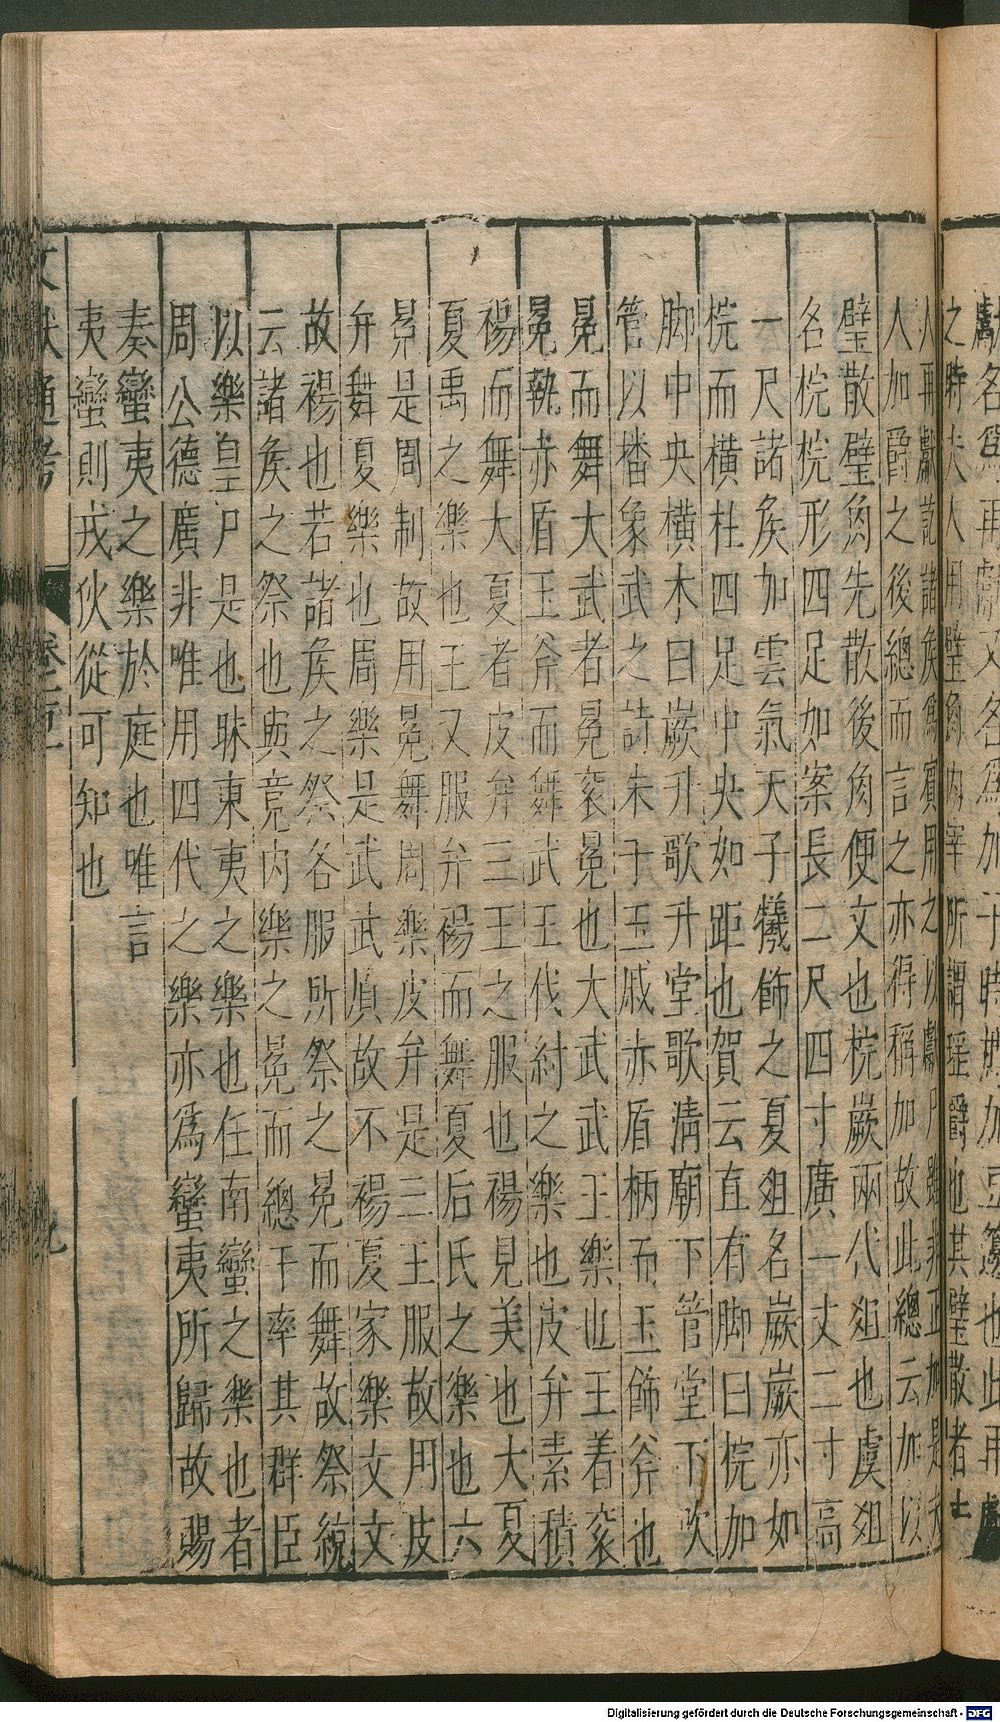 獻名爲再獻又名爲加于時加豆籩也此再獻
之時夫人用璧角內宰所謂瑤爵也其璧散者士
人再獻訖諸侯爲賓用之以獻尸雖非正加是夫
人加爵之後總而言之亦得稱加故此總云加以
璧散璧角先散後角便文也梡嶡兩代俎也虞俎
名梡梡形四足如案長二尺四寸廣一丈二寸高
一尺諸侯加雲氣天子犧飾之夏俎名嶡嶡亦如
梡而橫柱四足中央如距也賀云直有脚曰梡加
脚中央橫木曰嶡升歌升堂歌清廟下管堂下吹
管以播象武之詩朱于玉戚赤盾柄而玉飾斧也
冕而舞大武者冕袞冕也大武武王樂也王着袞
冕執赤盾玉斧而舞武王伐紂之樂也皮弁素積
裼而舞大夏者皮弁三王之服也裼見美也大夏
夏禹之樂也王又服弁裼而舞夏后氏之樂也六
冕是周制故用冕舞周樂皮弁是三王服故用皮
弁舞夏樂也周樂是武武質故不裼夏家樂文文
故裼也若諸侯之祭各服所祭之冕而舞故祭統
云諸侯之祭也與竟內樂之冕而總干率其群臣
以樂皇尸是也昧東夷之樂也任南蠻之樂也者
周公德廣非唯用四代之樂亦爲蠻夷所歸故賜
奏蠻夷之樂於庭也唯言
夷蠻則戎狄從可知也
文獻通考
九
Digitalisierung gefördert durch die Deutsche Forschungsgemeinschaft - DFG